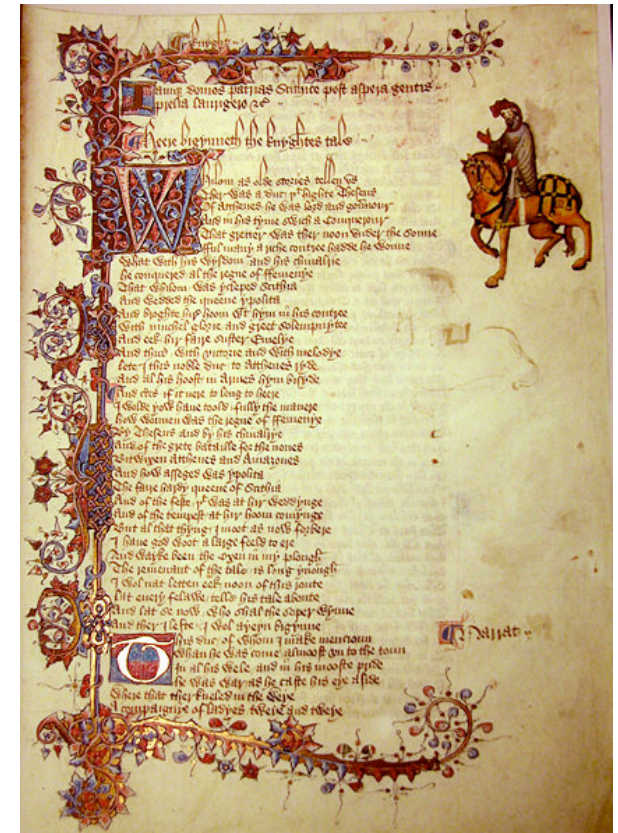 Knyght
Iamque domos patrias Scithice post aspera gentis
prelia laurigero &c
Heere bigynneth the knyghtes tale
Whilom as olde stories tellen vs
Ther was a duc þt highte Theseus
Of Atthenes he was lord and gouernour
And in his tyme swich a conquerour
That gretter was ther noon vnder the sonne
fful many a riche contree hadde he wonne
What with his wysdom and his chiualrie
he conquered al the regne of ffemenye
That whilom was ycleped Scithia
And wedded the queene ypolita
And broghte hir hoom wt hym in his contree
With muchel glorie and greet solempnytee
And eek hir faire suster Emelye
And thus with victorie and with melodye
lete I this noble duc to Atthenes ryde
And al his hoost in Armes hym bisyde
And certes if it nere to long to heere
I wolde yow haue toold fully the manere
how wonnen was the regne of ffemenye
By Theseus and by his chiualrye
And of the grete bataille for the nones
Bitwixen Atthenes and Amazones
And how asseged was ypolita
The faire hardy queene of Scithia
And of the feste þt was at hir weddynge
And of the tempest at hir hoom comynge
But al that thyng I moot as now forbere
I haue god woot a large feeld to ere
And wayke been the oxen in my plough
The remenant of the tale is long ynough
I wol nat letten eek noon of this route
lat euery felawe telle his tale aboute
And lat se now who shal the soper wynne
And ther I lefte I wol ayeyn bigynne
This duc of whom I make mencioun
Whan he was come almoost vn to the toun
In al his wele and in his mooste pride
he was war as he caste his eye aside
Where that ther kneled in the weye
A compaignye of ladyes tweye and tweye
Narrat